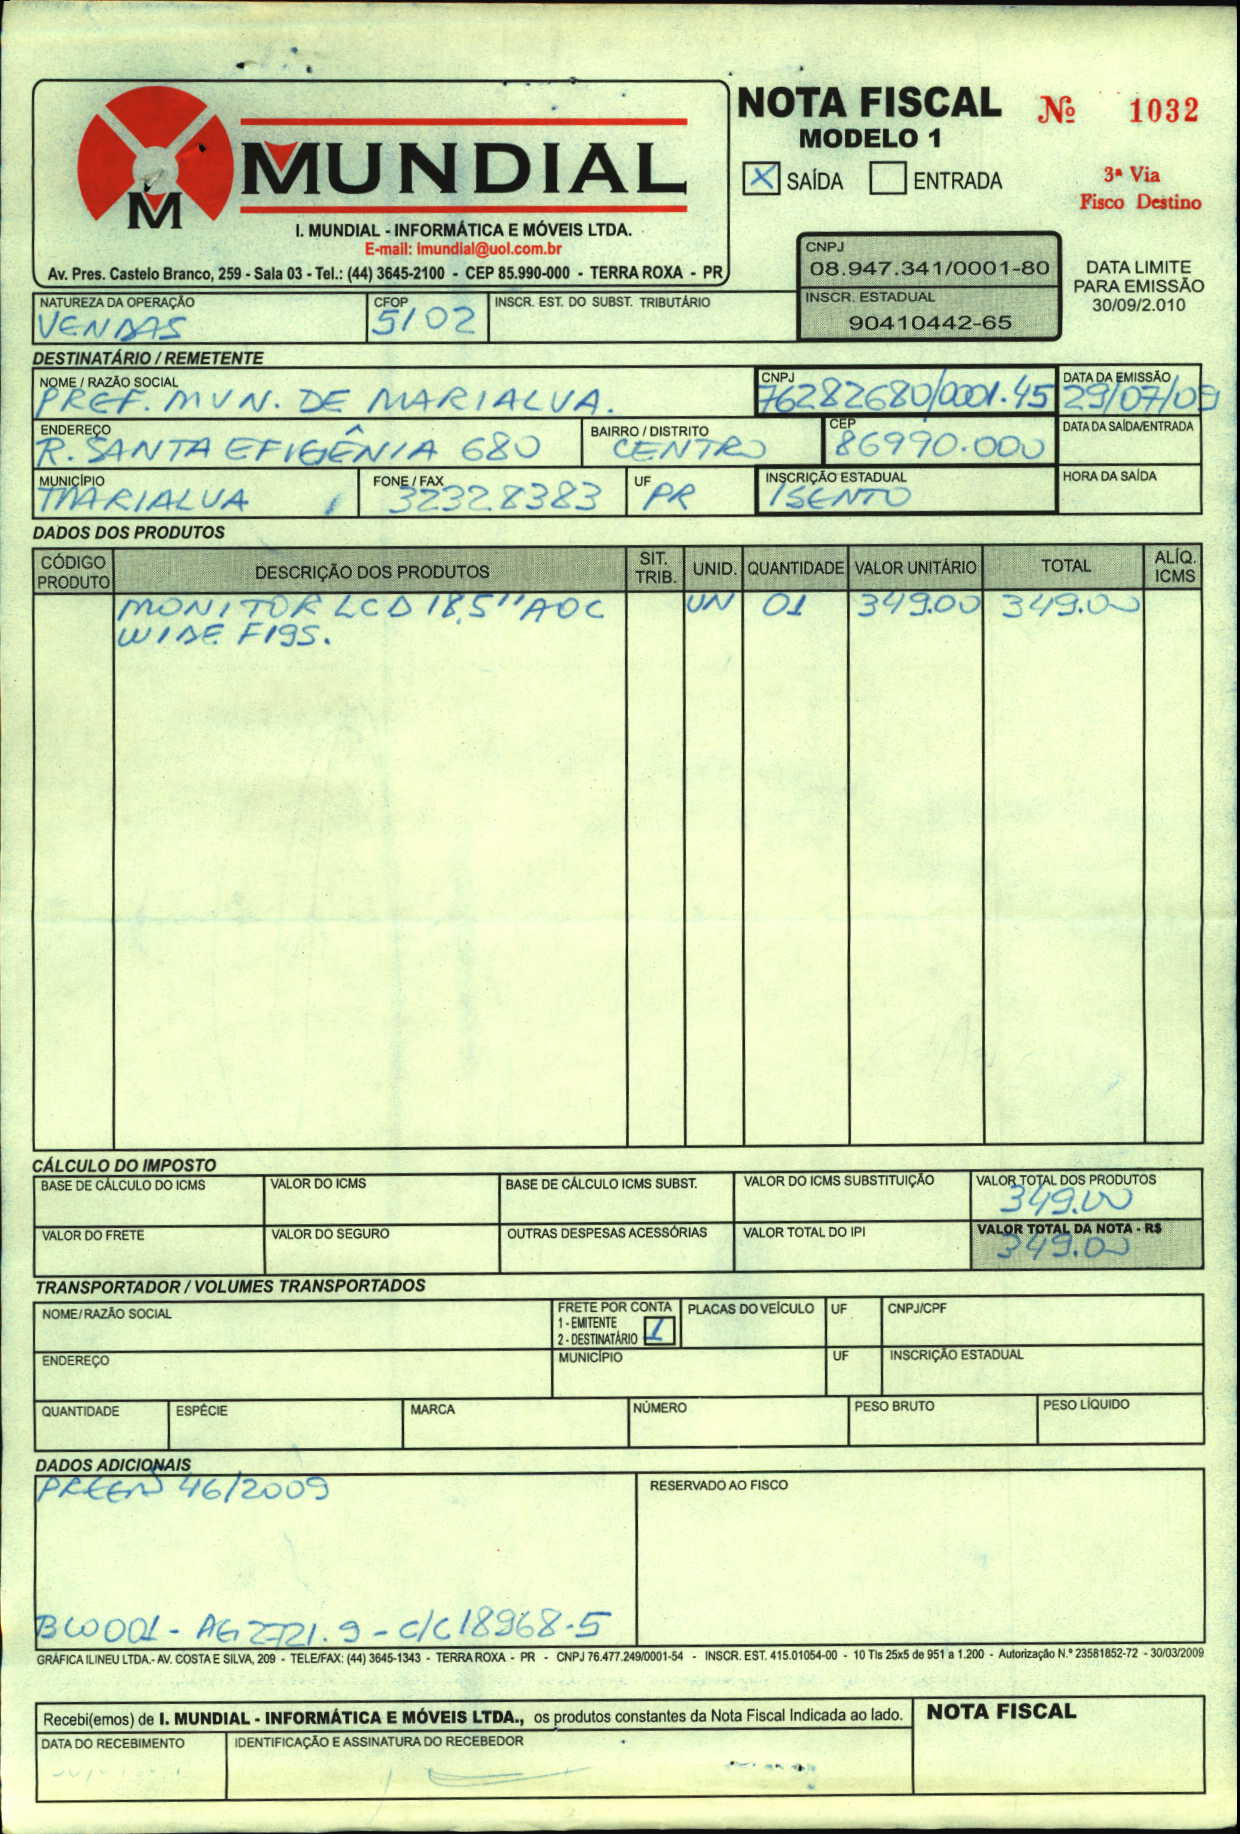 NOTA FISCAL
MODELO 1
Nº 1032
X SAÍDA ENTRADA
3ª Via
Fisco Destino
M
MUNDIAL
I. MUNDIAL - INFORMÁTICA E MÓVEIS LTDA.
E-mail: imundial@uol.com.br
Av. Pres. Castelo Branco, 259 - Sala 03 - Tel.: (44) 3645-2100 - CEP 85.990-000 - TERRA ROXA - PR
CNPJ
08.947.341/0001-80
INSCR. ESTADUAL
90410442-65
DATA LIMITE
PARA EMISSÃO
30/09/2.010
NATUREZA DA OPERAÇÃO CFOP INSCR. EST. DO SUBST. TRIBUTÁRIO
VENDAS 5102
DESTINATÁRIO / REMETENTE
NOME / RAZÃO SOCIAL CNPJ DATA DA EMISSÃO
PREF. MUN. DE MARIALVA. 76282680/0001.45 29/07/09
ENDEREÇO BAIRRO / DISTRITO CEP DATA DA SAÍDA/ENTRADA
R. SANTA EFIGÊNIA 680 CENTRO 86990.000
MUNICÍPIO FONE / FAX UF INSCRIÇÃO ESTADUAL HORA DA SAÍDA
MARIALVA 32328383 PR ISENTO
DADOS DOS PRODUTOS
CÓDIGO PRODUTO DESCRIÇÃO DOS PRODUTOS SIT. TRIB. UNID. QUANTIDADE VALOR UNITÁRIO TOTAL ALÍQ. ICMS
MONITOR LCD 18,5" AOC UN 01 349.00 349.00
WIDE F19S.
CÁLCULO DO IMPOSTO
BASE DE CÁLCULO DO ICMS VALOR DO ICMS BASE DE CÁLCULO ICMS SUBST. VALOR DO ICMS SUBSTITUIÇÃO VALOR TOTAL DOS PRODUTOS
349.00
VALOR DO FRETE VALOR DO SEGURO OUTRAS DESPESAS ACESSÓRIAS VALOR TOTAL DO IPI VALOR TOTAL DA NOTA - R$
349.00
TRANSPORTADOR / VOLUMES TRANSPORTADOS
NOME/RAZÃO SOCIAL FRETE POR CONTA PLACAS DO VEÍCULO UF CNPJ/CPF
1 - EMITENTE
2 - DESTINATÁRIO 1
ENDEREÇO MUNICÍPIO UF INSCRIÇÃO ESTADUAL
QUANTIDADE ESPÉCIE MARCA NÚMERO PESO BRUTO PESO LÍQUIDO
DADOS ADICIONAIS
46/2009
RESERVADO AO FISCO
BCO 001 - AG 2721.9 - C/C 18968-5
GRÁFICA ILINEU LTDA.- AV. COSTA E SILVA, 209 - TELE/FAX: (44) 3645-1343 - TERRA ROXA - PR - CNPJ 76.477.249/0001-54 - INSCR. EST. 415.01054-00 - 10 Tls 25x5 de 951 a 1.200 - Autorização N.º 23581852-72 - 30/03/2009
Recebi(emos) de I. MUNDIAL - INFORMÁTICA E MÓVEIS LTDA., os produtos constantes da Nota Fiscal Indicada ao lado.
NOTA FISCAL
DATA DO RECEBIMENTO IDENTIFICAÇÃO E ASSINATURA DO RECEBEDOR